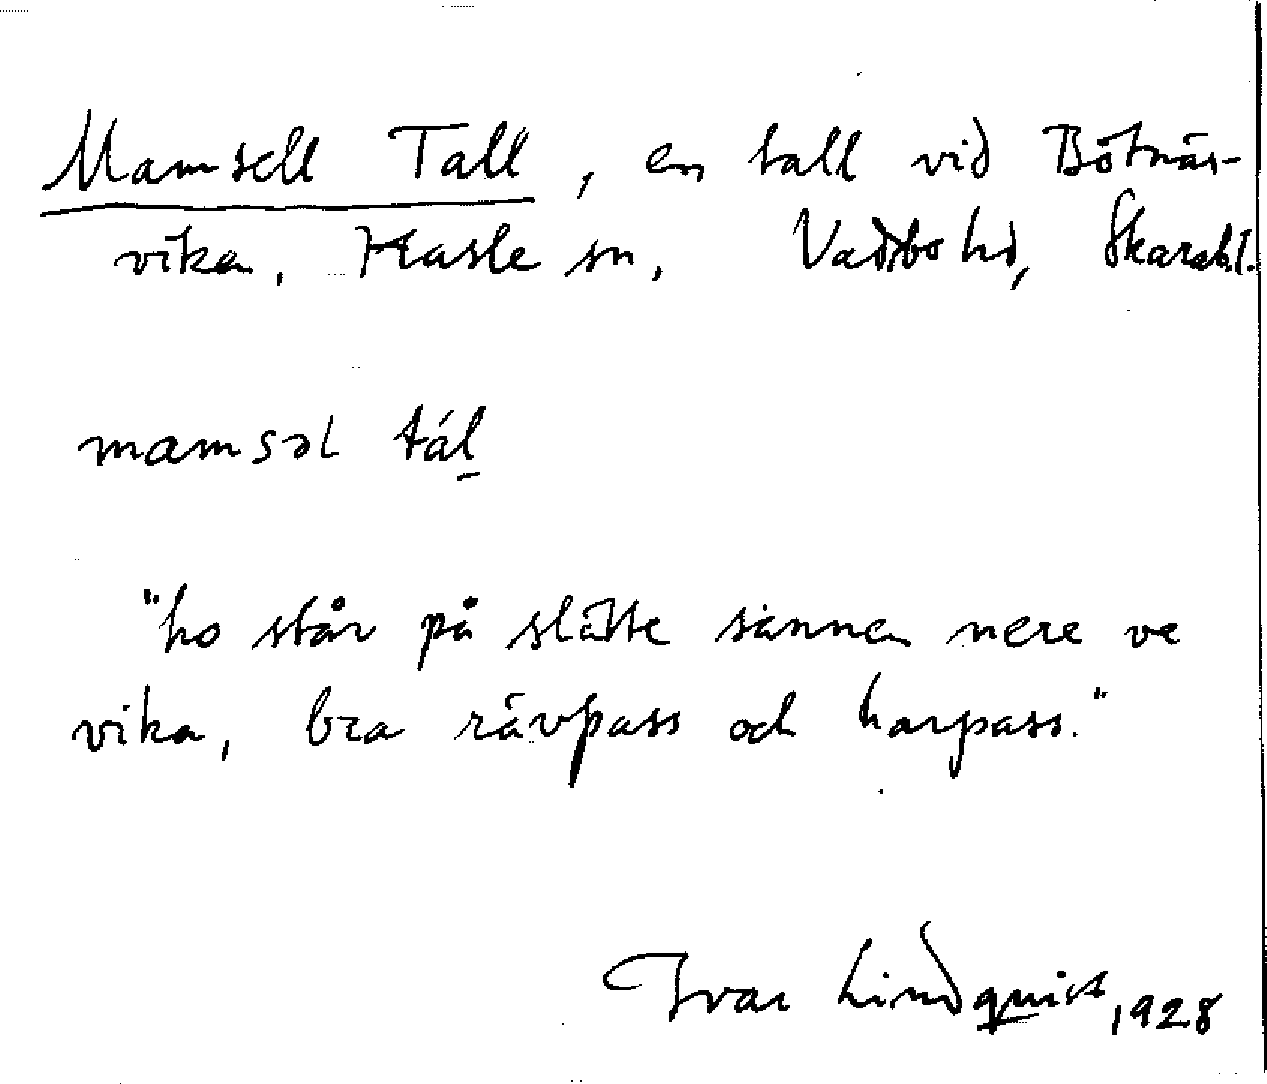 Mamsell Tall, en tall vid Bötnäs-
vika, Hasle sn, Vadsbo hd, Skarab.l.
mamsəl tál̠
"ho står på slätte sännen nere ve
vika, bra rävpass och harpass."
Ivar Lindquist, 1928